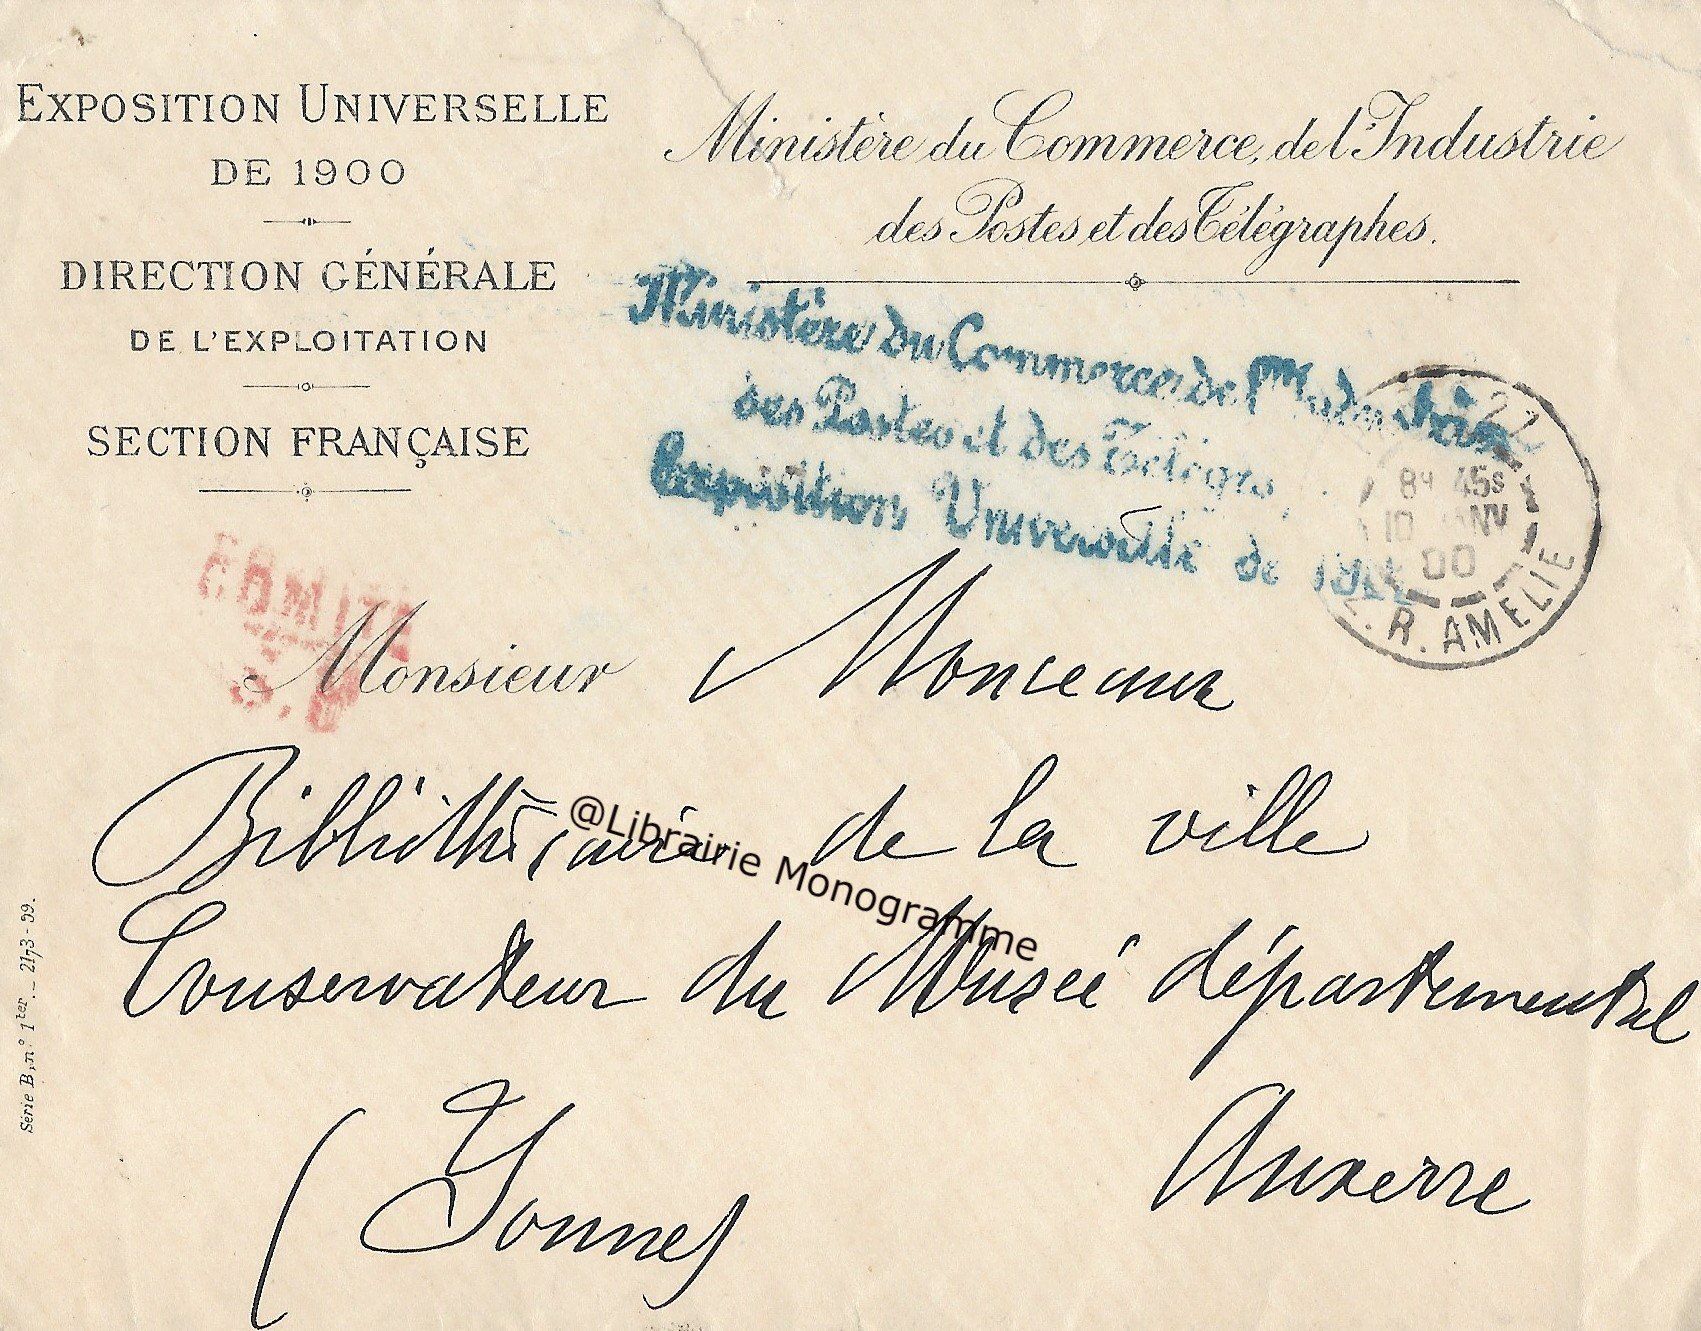 EXPOSITION UNIVERSELLE
DE 1900
DIRECTION GÉNÉRALE
DE L'EXPLOITATION
SECTION FRANÇAISE
Ministère du Commerce, de l'Industrie
des Postes et des Télégraphes.
Ministère du Commerce de l'Industrie
des Postes et des Télégra
Exposition Universelle de
22
8H 45S
10 JANV
00
R. AMELIE
COMITÉ
Monsieur Monceaux
Bibliothécaire de la ville
Conservateur du Musée départemental
Auxerre
(Yonne)
@Librairie Monogramme
Série B, n° 1ter. - 2173-99.